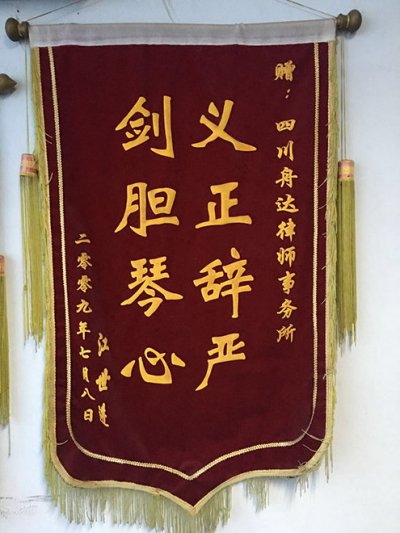 赠：四川舟达律师事务所
义正辞严
剑胆琴心
江世莲
二零零九年七月八日